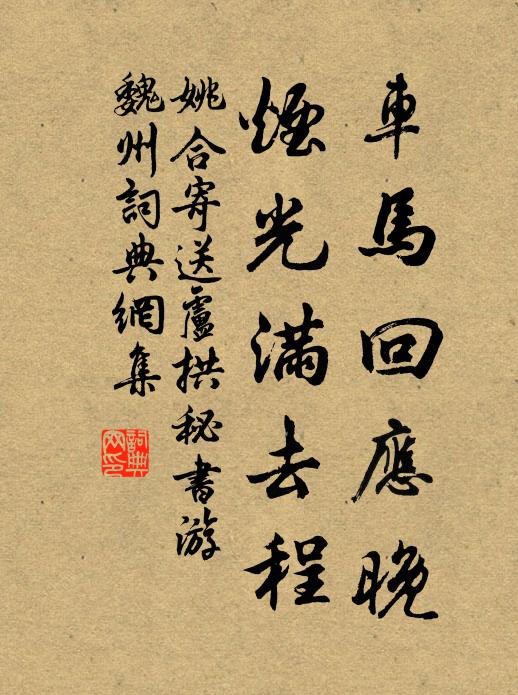 車馬回應晚
煙光滿去程
姚合寄送盧拱秘書游
魏州詞典網集
詞典网印